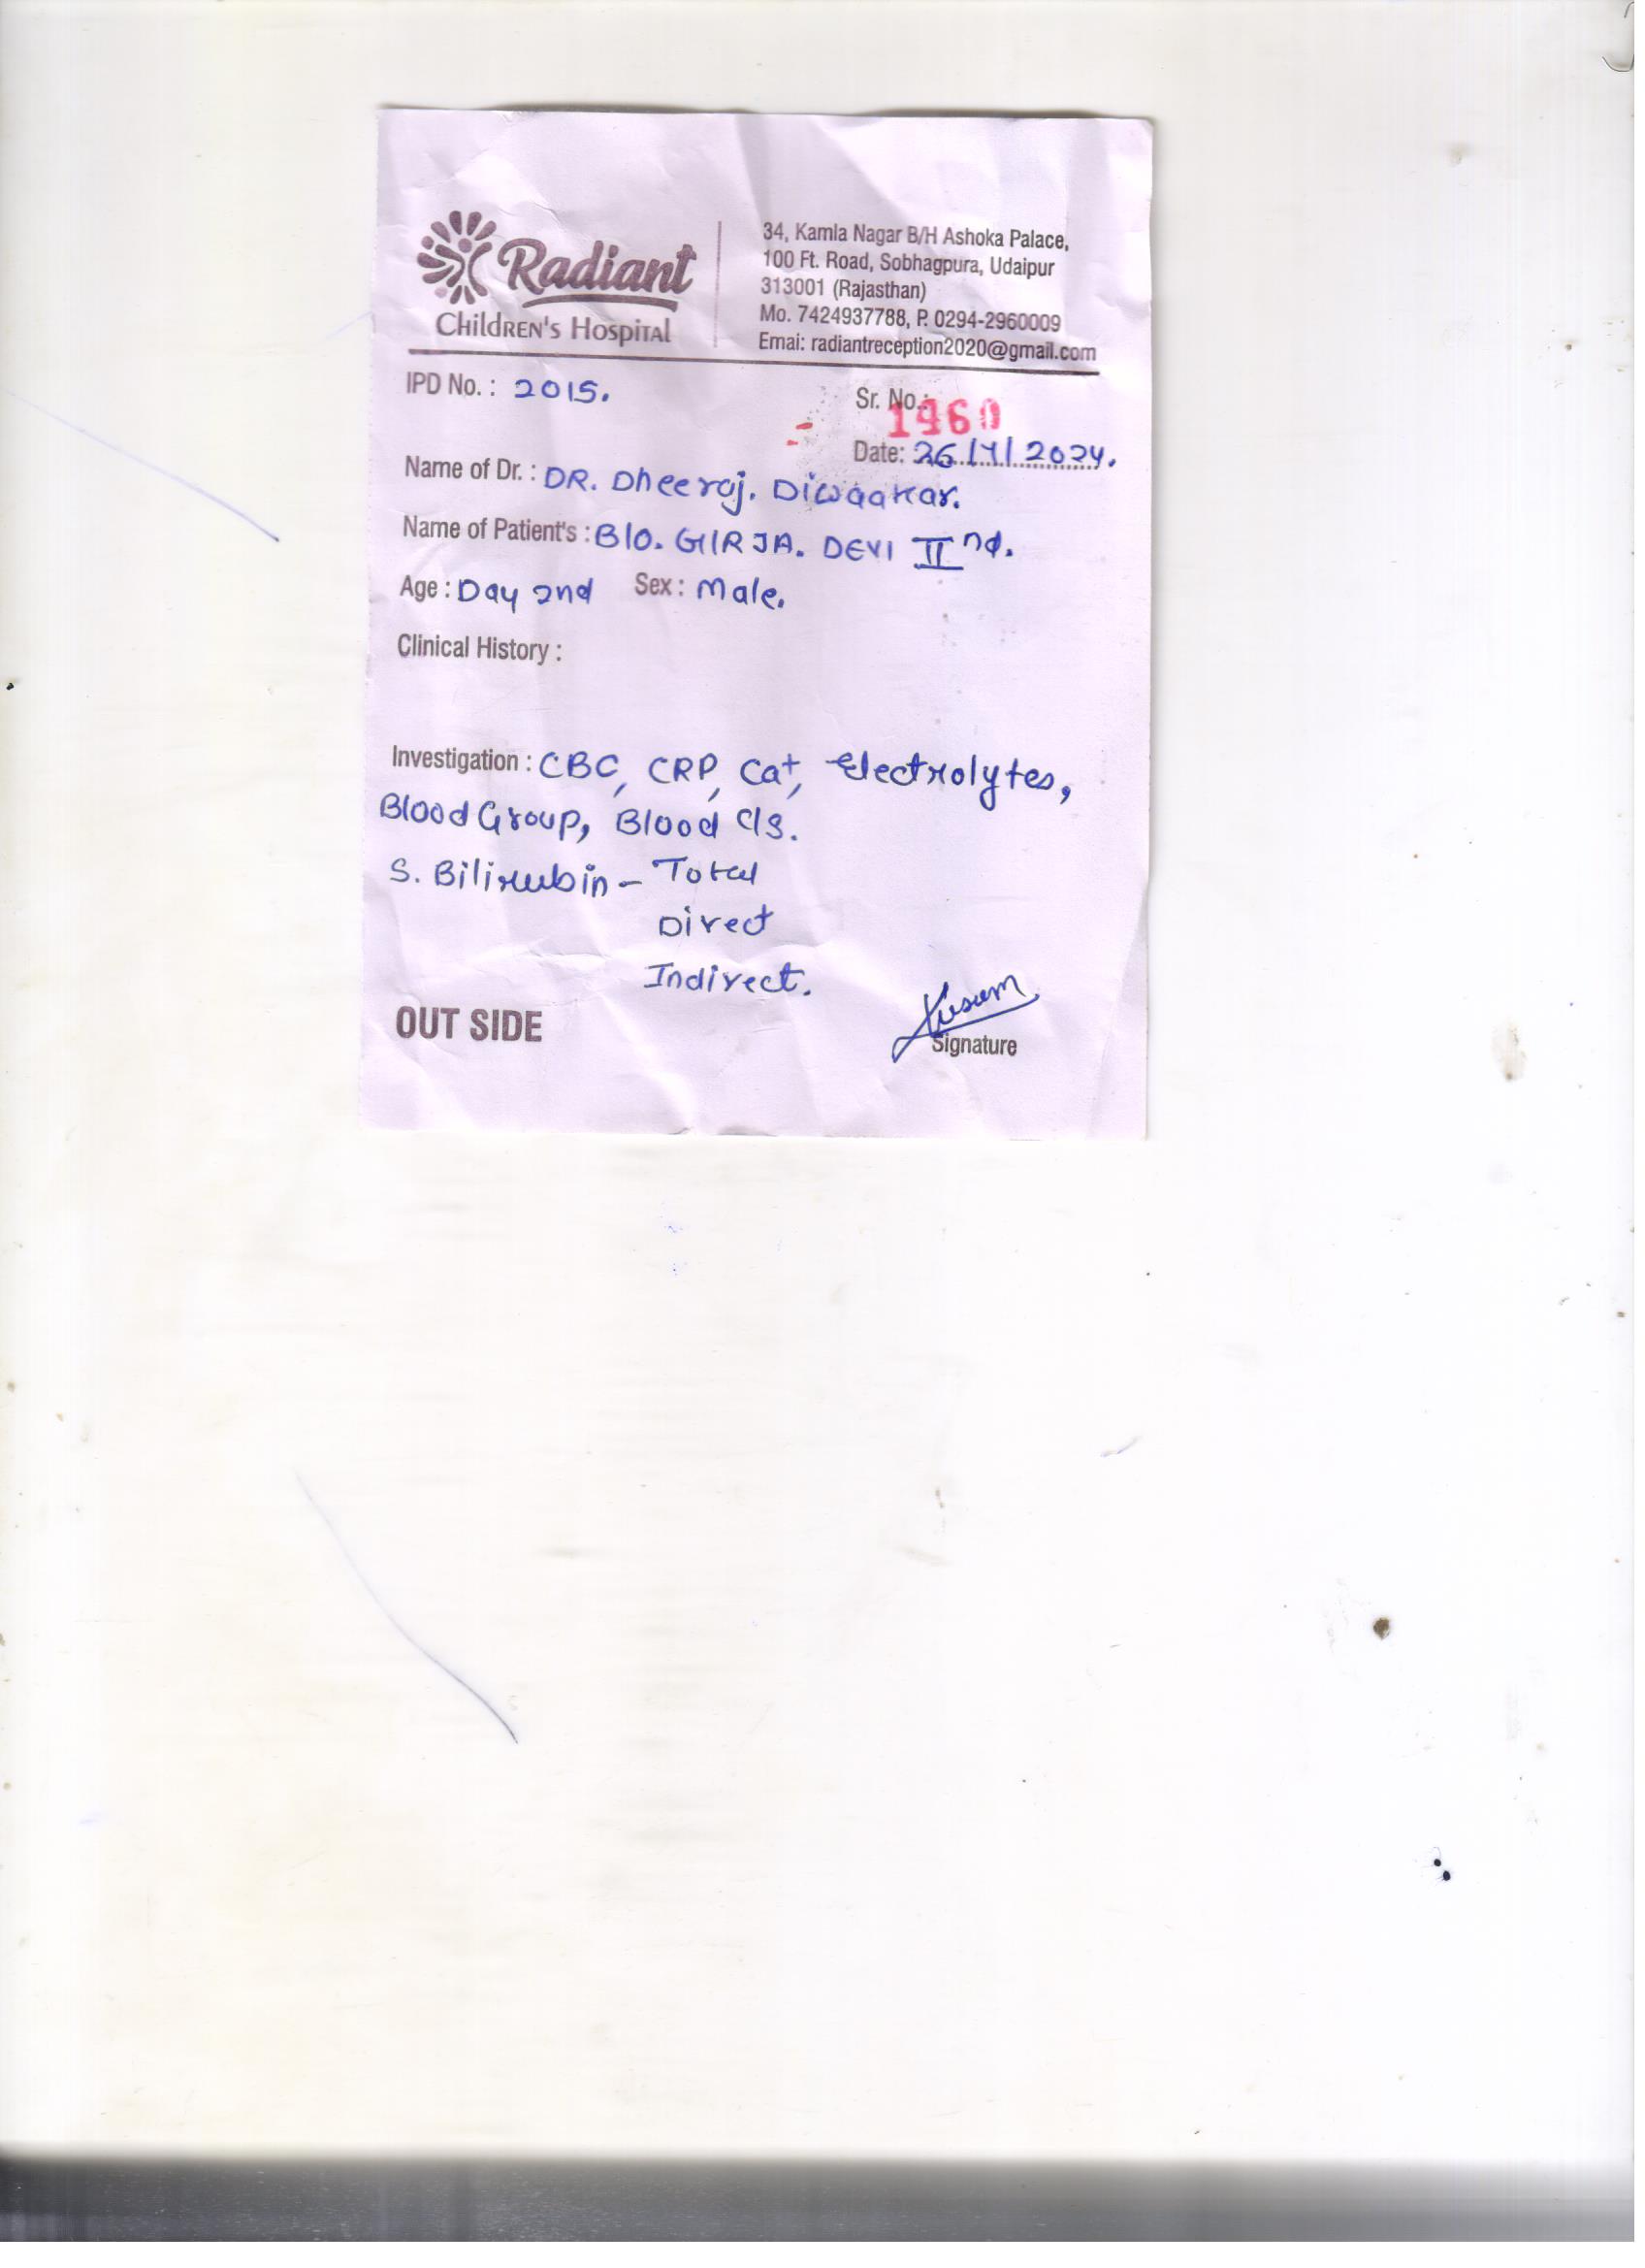 Radiant
Children's Hospital
34, Kamla Nagar B/H Ashoka Palace,
100 Ft. Road, Sobhagpura, Udaipur
313001 (Rajasthan)
Mo. 7424937788, P. 0294-2960009
Emai: radiantreception2020@gmail.com
IPD No. : 2015.
Sr. No.:
Date: 2024.
Name of Dr. : DR. Dheeraj. Diwaakar.
Name of Patient's : B/O. GIRJA. DEVI IInd.
Age : Day 2nd Sex : Male.
Clinical History :
Investigation : CBC, CRP, Ca+, Electrolytes,
Blood Group, Blood C/S.
S. Bilirubin - Total
Direct
Indirect.
OUT SIDE
Kusum
Signature